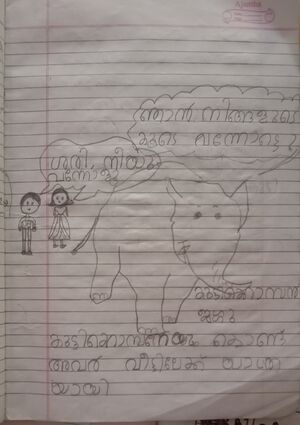 Ajantha
ഞാൻ നിങ്ങളുടെ
കൂടെ വന്നോട്ടെ
ശരി. നീയും
വന്നോളു
കുട്ടിക്കൊമ്പൻ
ജഗ്ഗു
കുട്ടിക്കൊമ്പനേയും കൊണ്ട്
അവർ വീട്ടിലേക്ക് യാത്ര
യായി